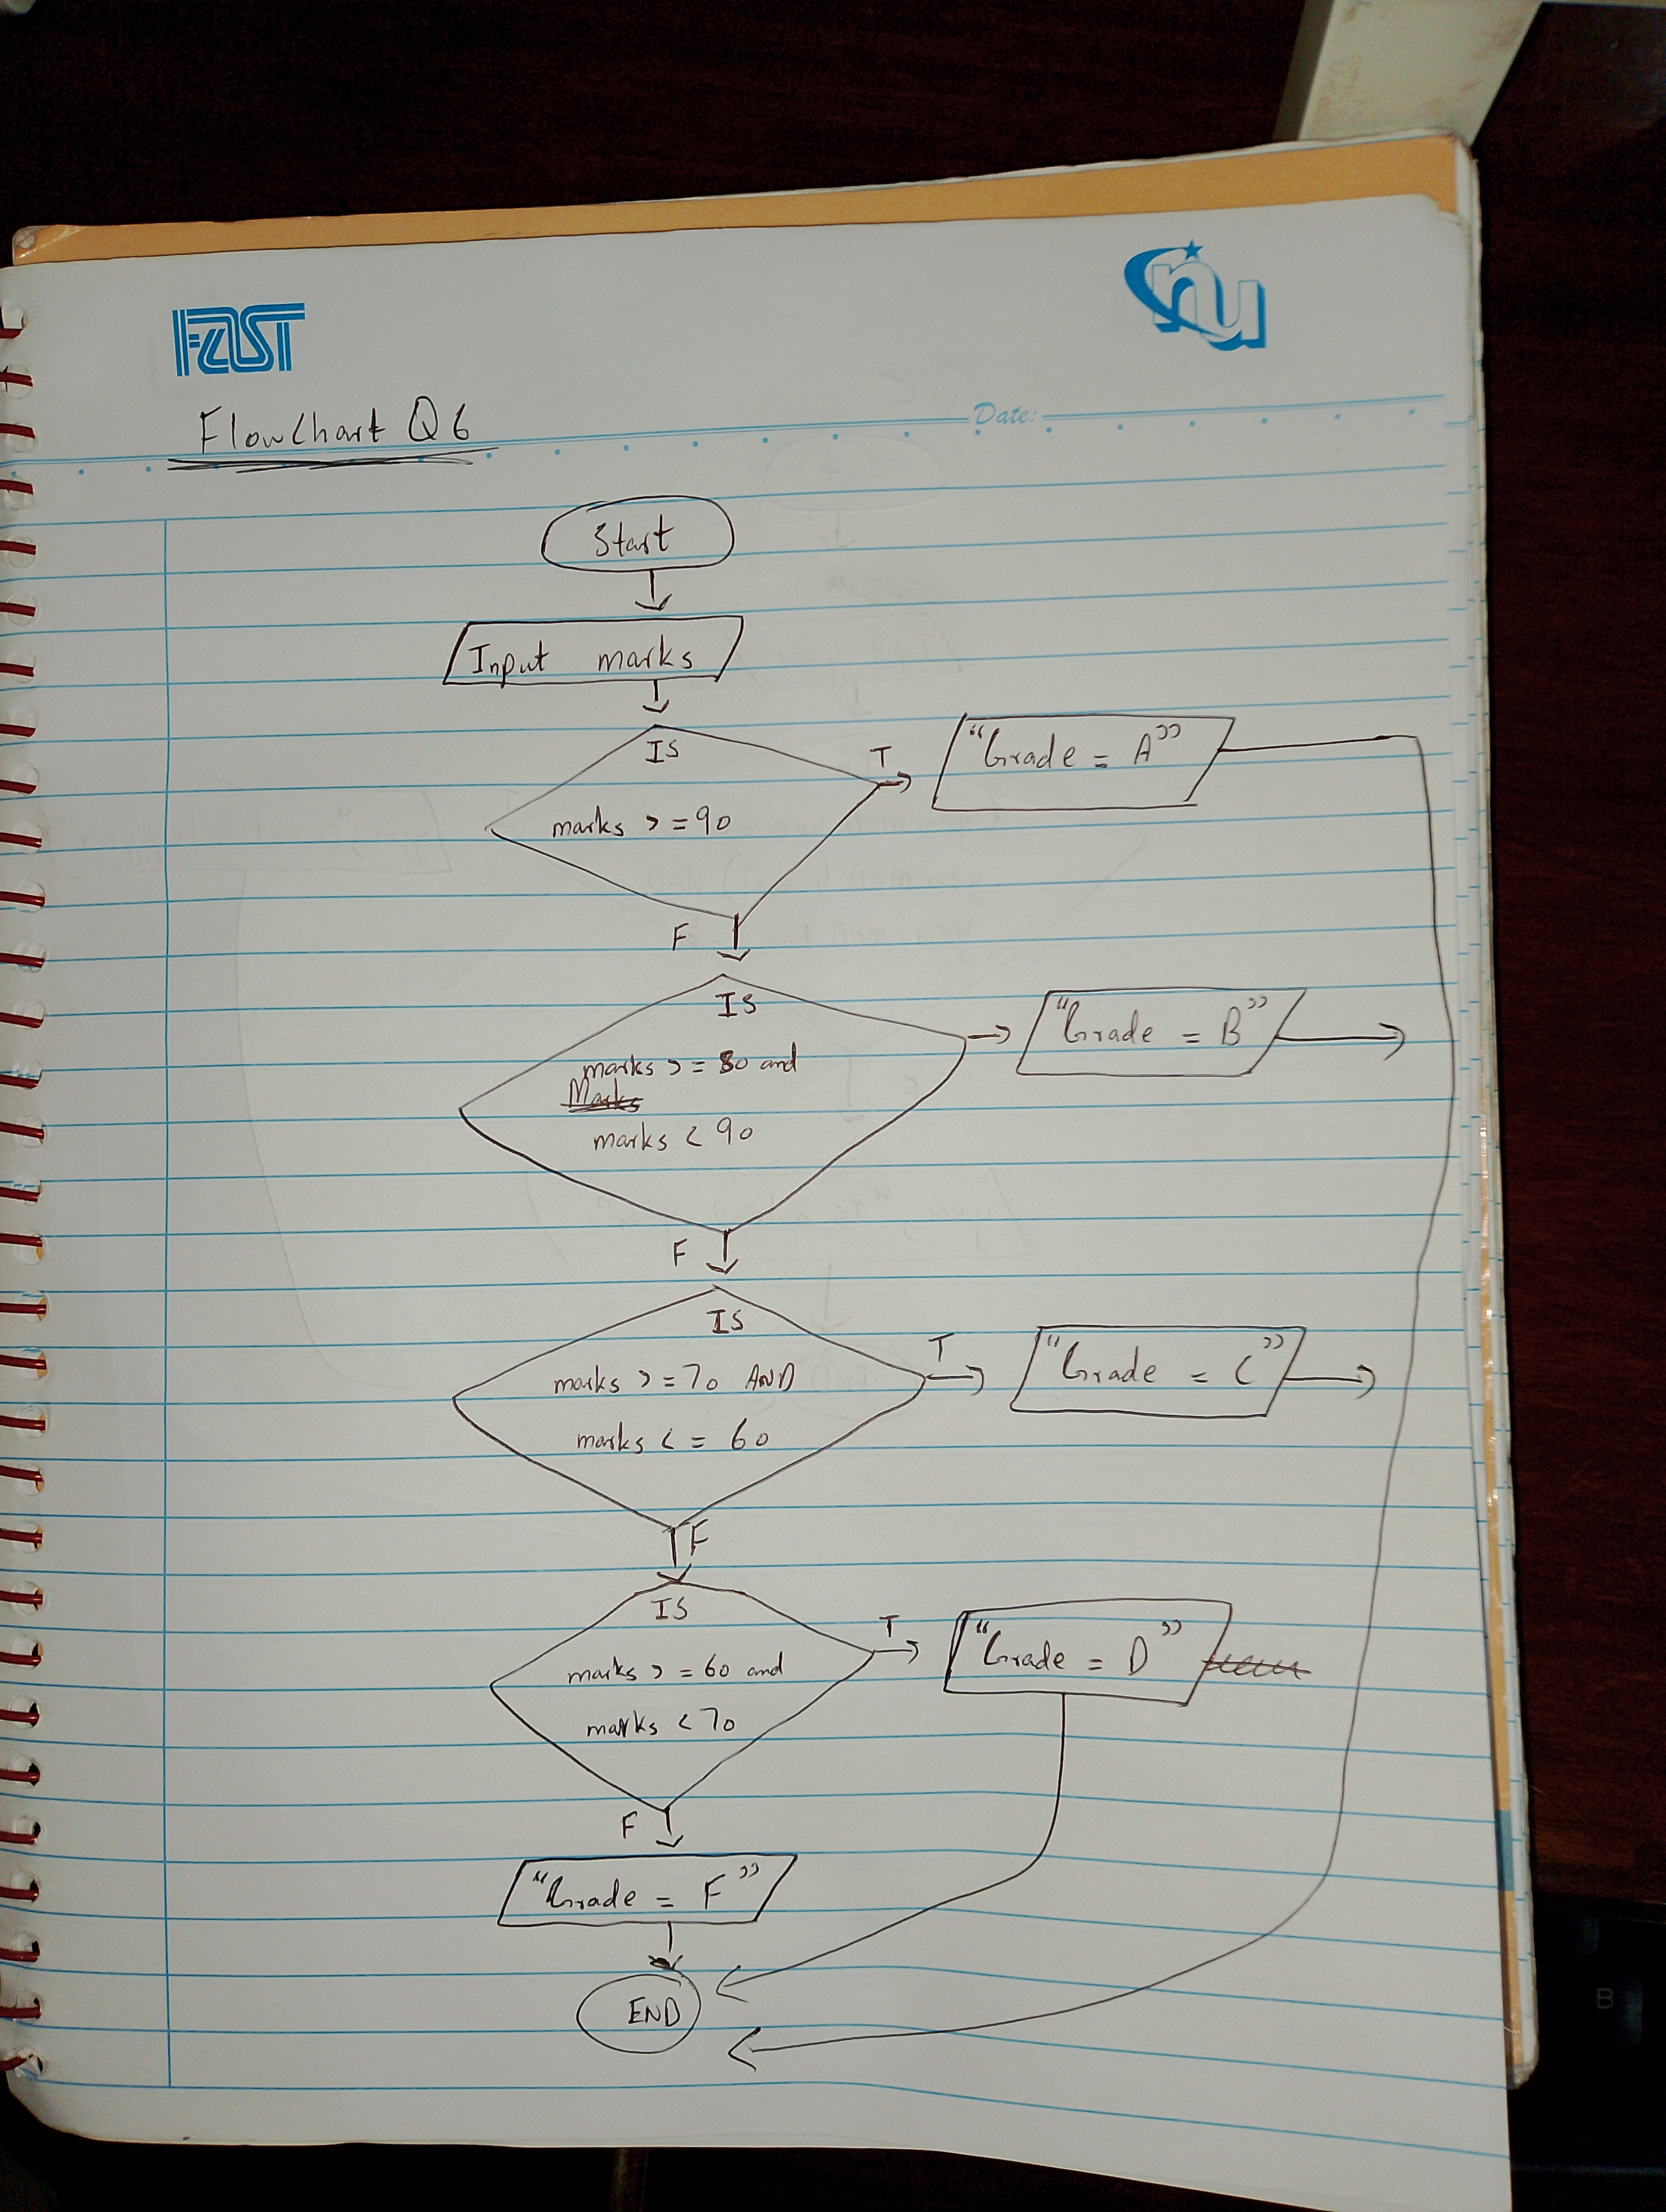 FAST
nu
Date:
Flowchart Q6
Start
Input marks
IS
marks >=90
T
"Grade = A"
F
IS
marks >= 80 and
Marks
marks < 90
"Grade = B"
F
IS
marks >=70 AND
marks <= 60
T
"Grade = C"
F
IS
marks >=60 and
marks <70
T
"Grade = D"
F
"Grade = F"
END
B